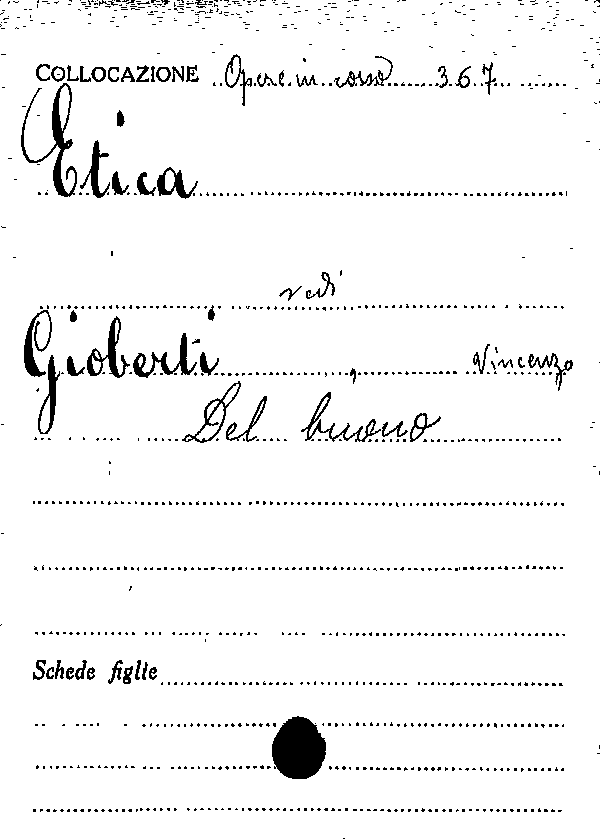 COLLOCAZIONE Opere in corso 3.6.7.
Etica
vedi
Gioberti , Vincenzo
Del buono
Schede figlie